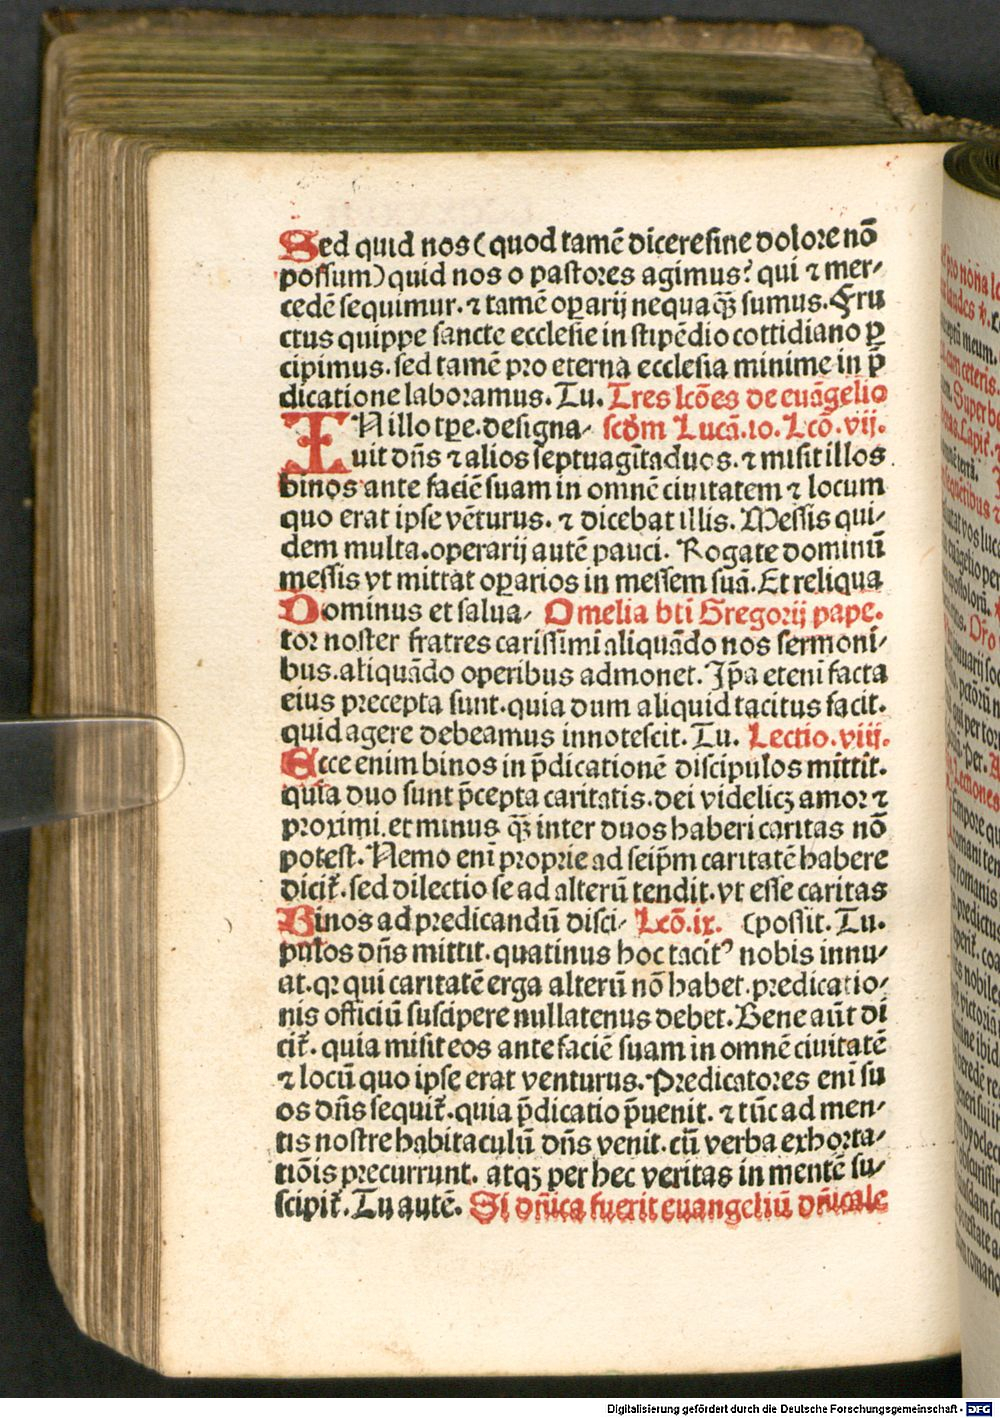 Sed quid nos (quod tamē dicere sine dolore nō
possum) quid nos o pastores agimus? qui ⁊ mer⸗
cedē sequimur. ⁊ tamē oꝑarij nequaqꝫ̄ sumus. Fru
ctus quippe sancte ecclesie in stipēdio cottidiano ꝑ
cipimus. sed tamē pro eterna ecclesia minime in p̄
dicatione laboramus. Tu. Tres lcōes de euāgelio
IN illo tꝑe. designa⸗ scdm Lucā. 10. Lcō. vij.
uit dn̄s ⁊ alios septuagītaduos. ⁊ misit illos
binos ante faciē suam in omnē ciuitatem ⁊ locum
quo erat ipse vēturus. ⁊ dicebat illis. Messis qui⸗
dem multa. operarij autē pauci. Rogate dominū
messis vt mittat oꝑarios in messem suā. Et reliqua
Dominus et salua⸗ Omelia bti Gregorij pape.
tor noster fratres carissimi aliquādo nos sermoni⸗
bus. aliquādo operibus admonet. Ip̄a etenī facta
eius precepta sunt. quia dum aliquid tacitus facit.
quid agere debeamus innotescit. Tu. Lectio. viij.
Ecce enim binos in p̄dicationē discipulos mittit.
quia duo sunt p̄cepta caritatis. dei videlicꝫ amor ⁊
proximi. et minus qꝫ̄ inter duos haberi caritas nō
potest. Nemo enī proprie ad seip̄m caritatē habere
dicit̃. sed dilectio se ad alterū tendit. vt esse caritas
Binos ad predicandū disci⸗ Lcō. ix. (possit. Tu.
pulos dn̄s mittit. quatinus hoc tacitꝰ nobis innu⸗
at. qꝛ qui caritatē erga alterū nō habet. predicatio⸗
nis officiū suscipere nullatenus debet. Bene aūt di
cit̃. quia misit eos ante faciē suam in omnē ciuitatē
⁊ locū quo ipse erat venturus. Predicatores enī su
os dn̄s sequit̃. quia p̄dicatio p̄uenit. ⁊ tūc ad men⸗
tis nostre habitaculū dn̄s venit. cū verba exhorta⸗
tiōis precurrunt. atqꝫ per hec veritas in mentē su⸗
scipit̃. Tu autē. Si dn̄ica fuerit euangeliū dn̄icale
Digitalisierung gefördert durch die Deutsche Forschungsgemeinschaft - DFG